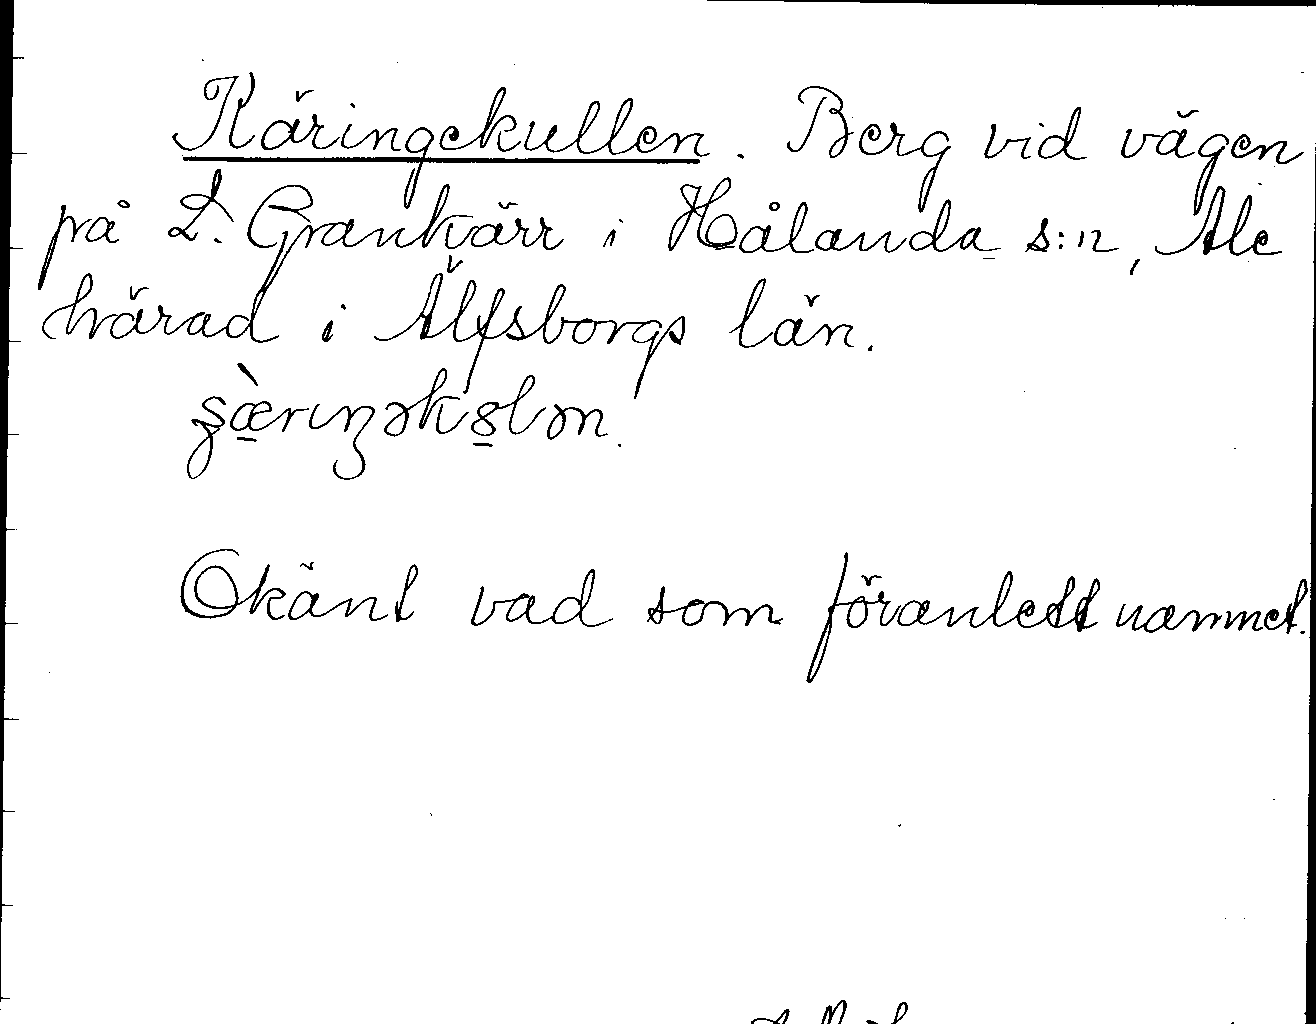 Käringekullen. Berg vid vägen
på L. Grankärr i Hålanda s:n, Ale
härad i Älfsborgs län.
Okänt vad som föranlett namnet.